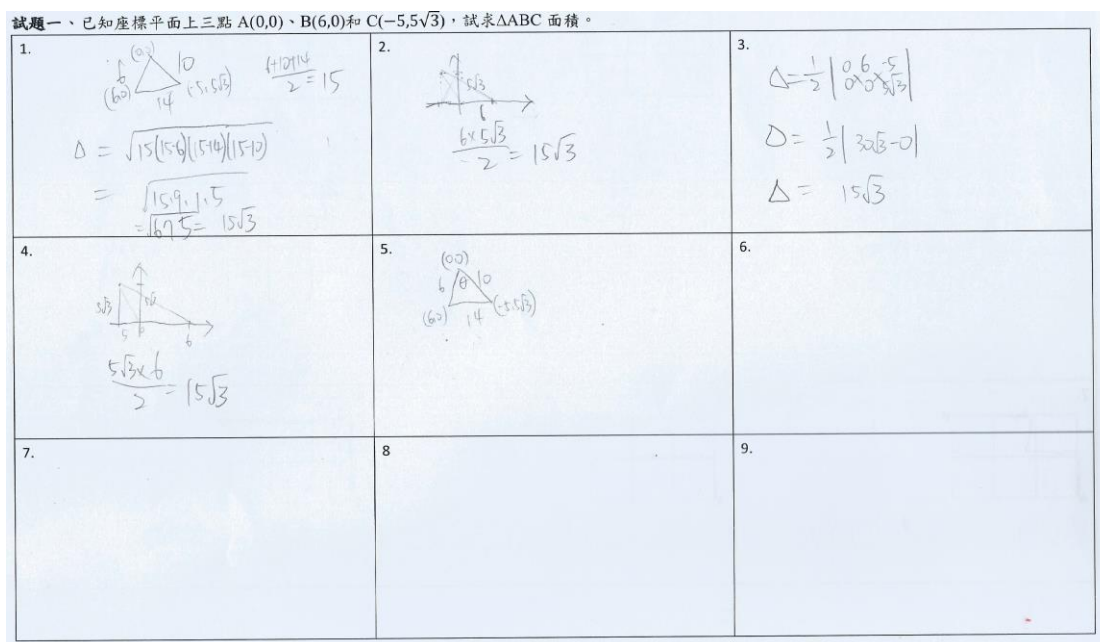 試題一、已知座標平面上三點 A(0,0)、B(6,0)和 C(−5,5√3)，試求ΔABC 面積。
1.
(0,0)
6 10
(6,0) 14 (-5,5√3)
6+10+14/2 = 15
Δ = √15(15-6)(15-14)(15-10)
= √15.9.1.5
= √675 = 15√3
2.
5√3
6
6×5√3/2 = 15√3
3.
Δ = 1/2 | 0 6 -5
0 0 5√3 |
Δ = 1/2 | 30√3-0 |
Δ = 15√3
4.
5√3
5 6
5√3×6/2 = 15√3
5.
(0,0)
6 θ 10
(6,0) 14 (-5,5√3)
6.
7.
8
9.